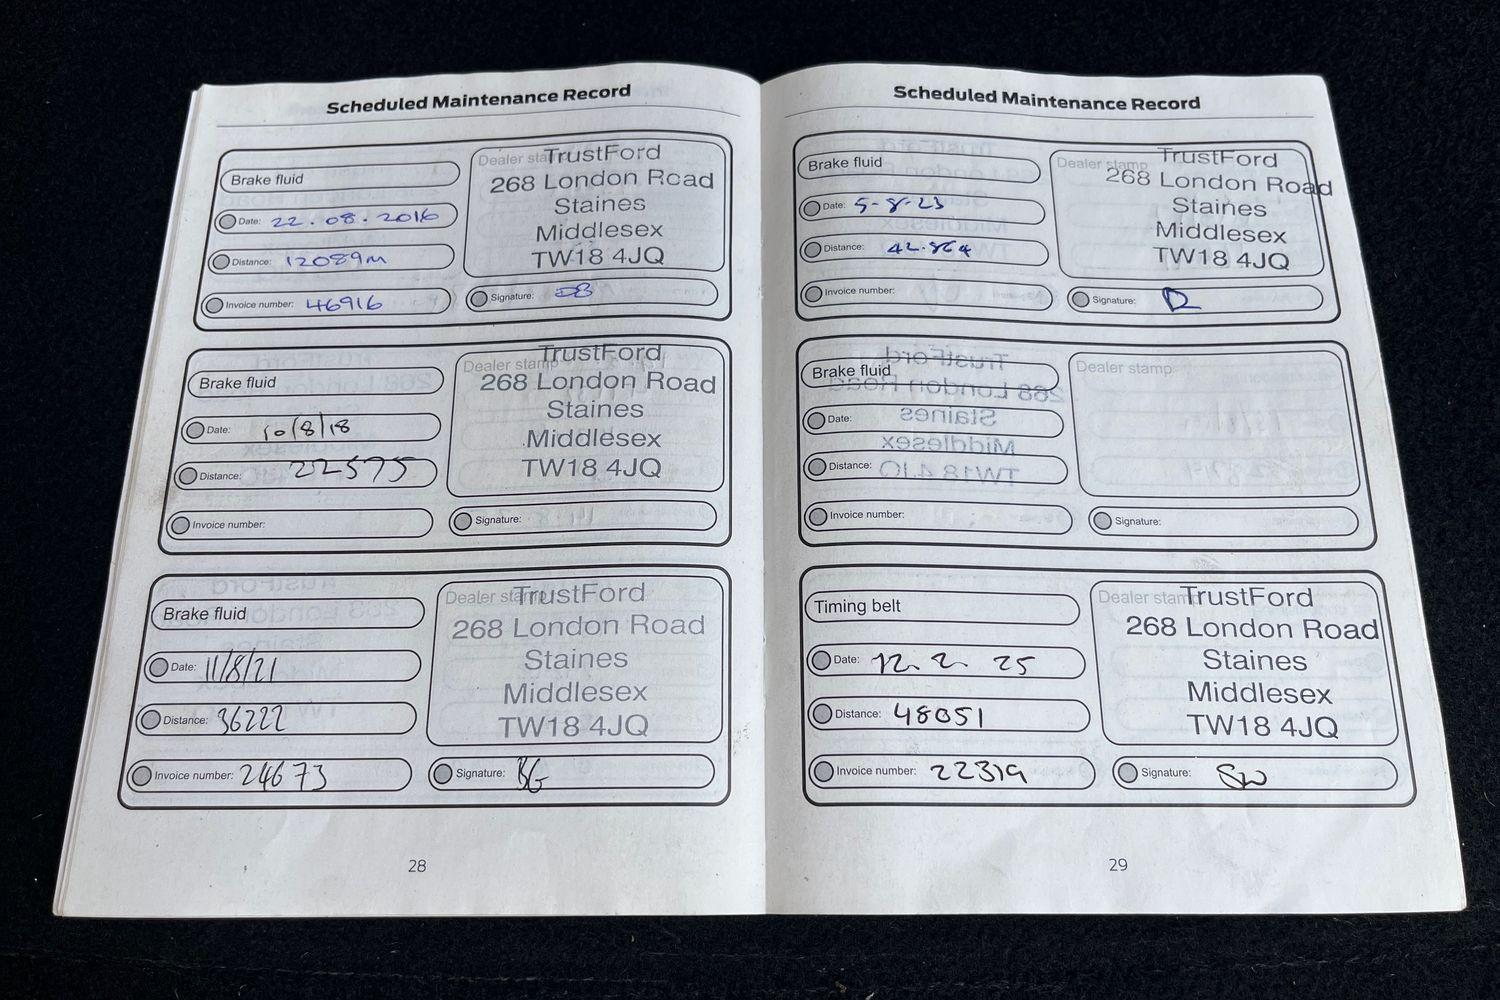 Scheduled Maintenance Record
Brake fluid
Date: 22.08.2016
Distance: 12089m
Invoice number: 46916
Dealer stamp
TrustFord
268 London Road
Staines
Middlesex
TW18 4JQ
Signature: DB
Brake fluid
Date: 10/8/18
Distance: 22575
Invoice number:
Dealer stamp
TrustFord
268 London Road
Staines
Middlesex
TW18 4JQ
Signature:
Brake fluid
Date: 11/8/21
Distance: 36222
Invoice number: 24673
Dealer stamp
TrustFord
268 London Road
Staines
Middlesex
TW18 4JQ
Signature: BG
28
Scheduled Maintenance Record
Brake fluid
Date: 5-8-23
Distance: 42.864
Invoice number:
Dealer stamp
TrustFord
268 London Road
Staines
Middlesex
TW18 4JQ
Signature:
Brake fluid
Date:
Distance:
Invoice number:
Dealer stamp
Signature:
Timing belt
Date: 12.2.25
Distance: 48051
Invoice number: 22319
Dealer stamp
TrustFord
268 London Road
Staines
Middlesex
TW18 4JQ
Signature: SW
29